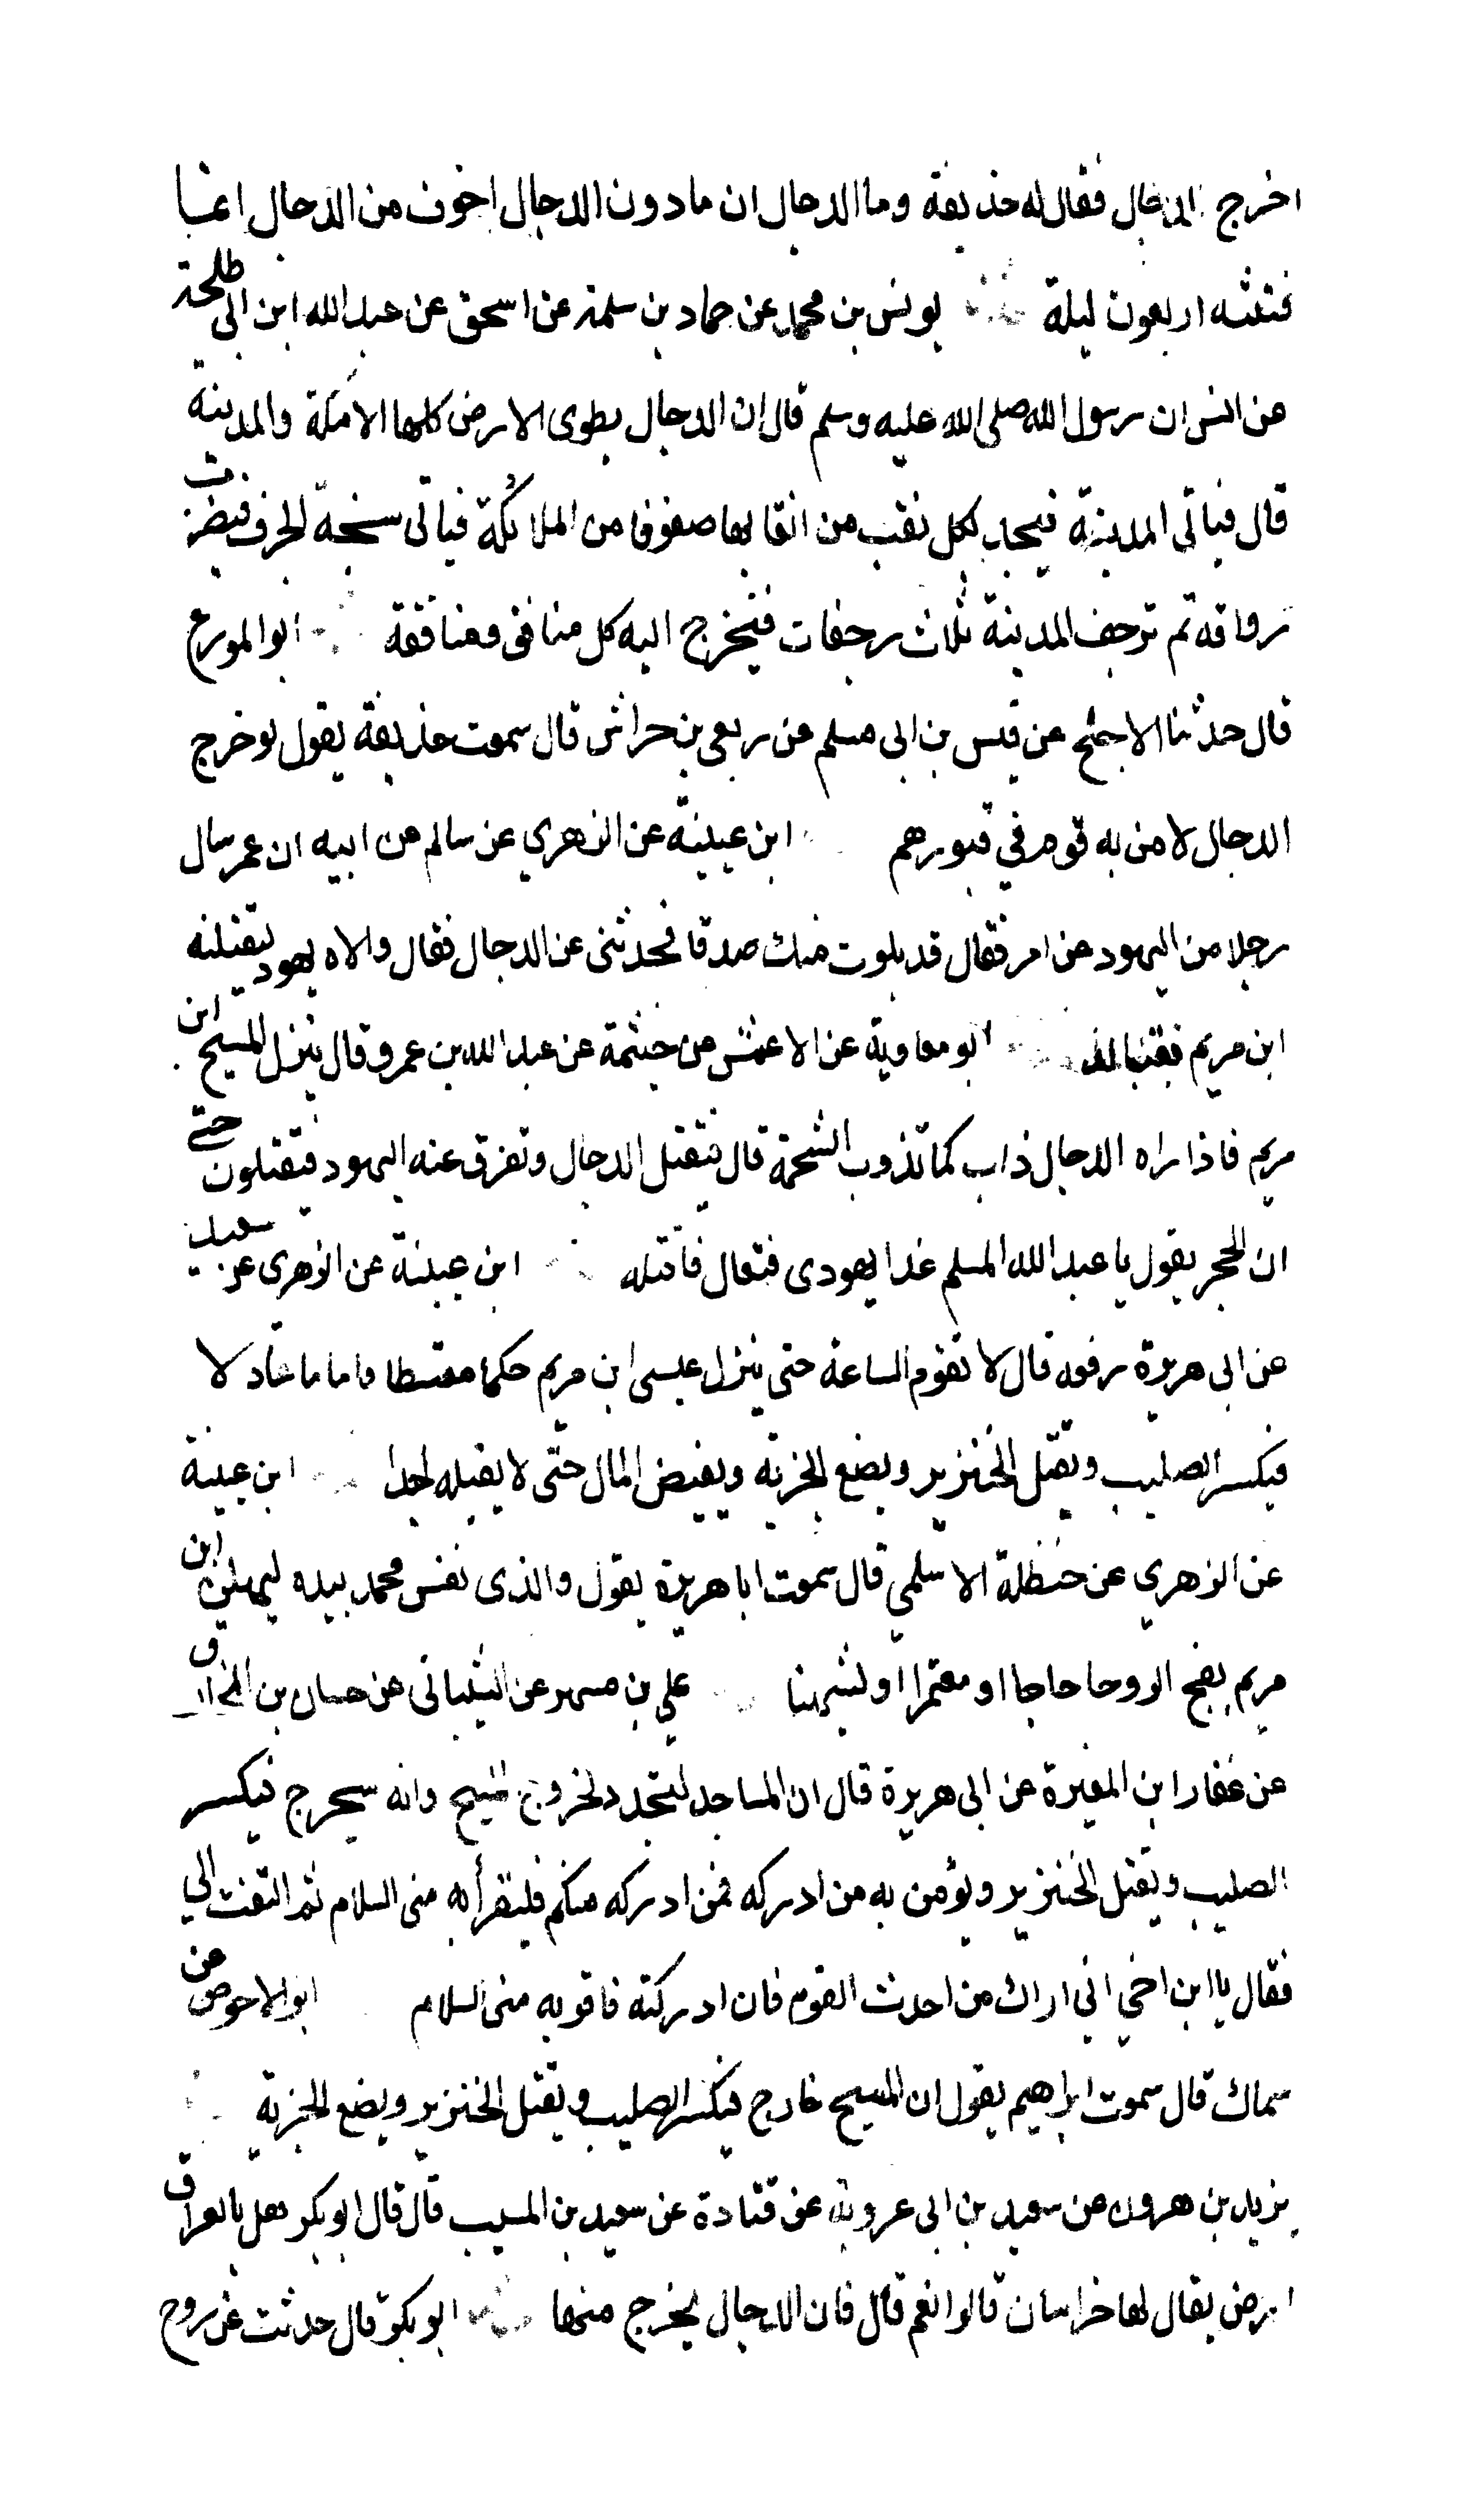 اخرج الدجال فقال له حذيفة وما الدجال ان ما دون الدجال اخوف من الدجال انما
فتنته اربعون ليلة يونس بن محمد عن حماد بن سلمة عن اسحق عن عبد الله ابن ابى طلحة
عن انس ان رسول الله صلى الله عليه وسلم قال ان الدجال يطوى الارض كلها الا مكة والمدينة
قال فياتى المدينة فيجد بكل نقب من انقابها صفوفا من الملائكة فياتى سبخة الجرف فيضرب
رواقه ثم ترجف المدينة ثلاث رجفات فيخرج اليه كل منافق ومنافقة ابو المورع
قال حدثنا الاجلح عن قيس بن ابى مسلم عن ربعى بن حراش قال سمعت حذيفة يقول لو خرج
الدجال لامن به قوم في قبورهم ابن عيينة عن الزهري عن سالم عن ابيه ان عمر سال
رجلا من اليهود عن امر فقال قد بلوت منك صدقا فحدثنى عن الدجال فقال واله يهود ليقتلنه
ابن مريم بفنا لد ابو معاوية عن الاعمش عن خيثمة عن عبد الله بن عمرو قال ينزل المسيح ابن
مريم فاذا راه الدجال ذاب كما تذوب الشحمة قال فيقتل الدجال وتفرق عنه اليهود فيقتلون حتى
ان الحجر يقول يا عبد الله المسلم هذا يهودى فتعال فاقتله ابن عيينة عن الزهرى عن سعيد
عن ابى هريرة رفعه قال لا تقوم الساعة حتى ينزل عيسى ابن مريم حكما مقسطا واماما عادلا
فيكسر الصليب ويقتل الخنزير ويضع الجزية ويفيض المال حتى لا يقبله احد ابن عيينة
عن الزهري عن حنظلة الاسلمي قال سمعت ابا هريرة يقول والذى نفس محمد بيده ليهلن ابن
مريم بفج الروحا حاجا او معتمرا او ليثنيهما علي بن مسهر عن الشيبانى عن حسان بن المخارق
عن عفار ابن المغيرة عن ابى هريرة قال ان المساجد لتجدد لخروج المسيح وانه سيخرج فيكسر
الصليب ويقتل الخنزير ويؤمن به من ادركه فمن ادركه منكم فليقرأه منى السلام ثم التفت الي
فقال يا ابن اخي انى اراك من احدث القوم فان ادركته فاقره منى السلام ابو الاحوص عن
سماك قال سمعت ابراهيم يقول ان المسيح خارج فيكسر الصليب ويقتل الخنزير ويضع الجزية
يزيد بن هرون عن سعيد بن ابى عروبة عن قتادة عن سعيد بن المسيب قال قال ابو بكر هل بالعراق
ارض يقال لها خراسان قالوا نعم قال فان الدجال يخرج منها ابو بكر قال حدثت عن روح